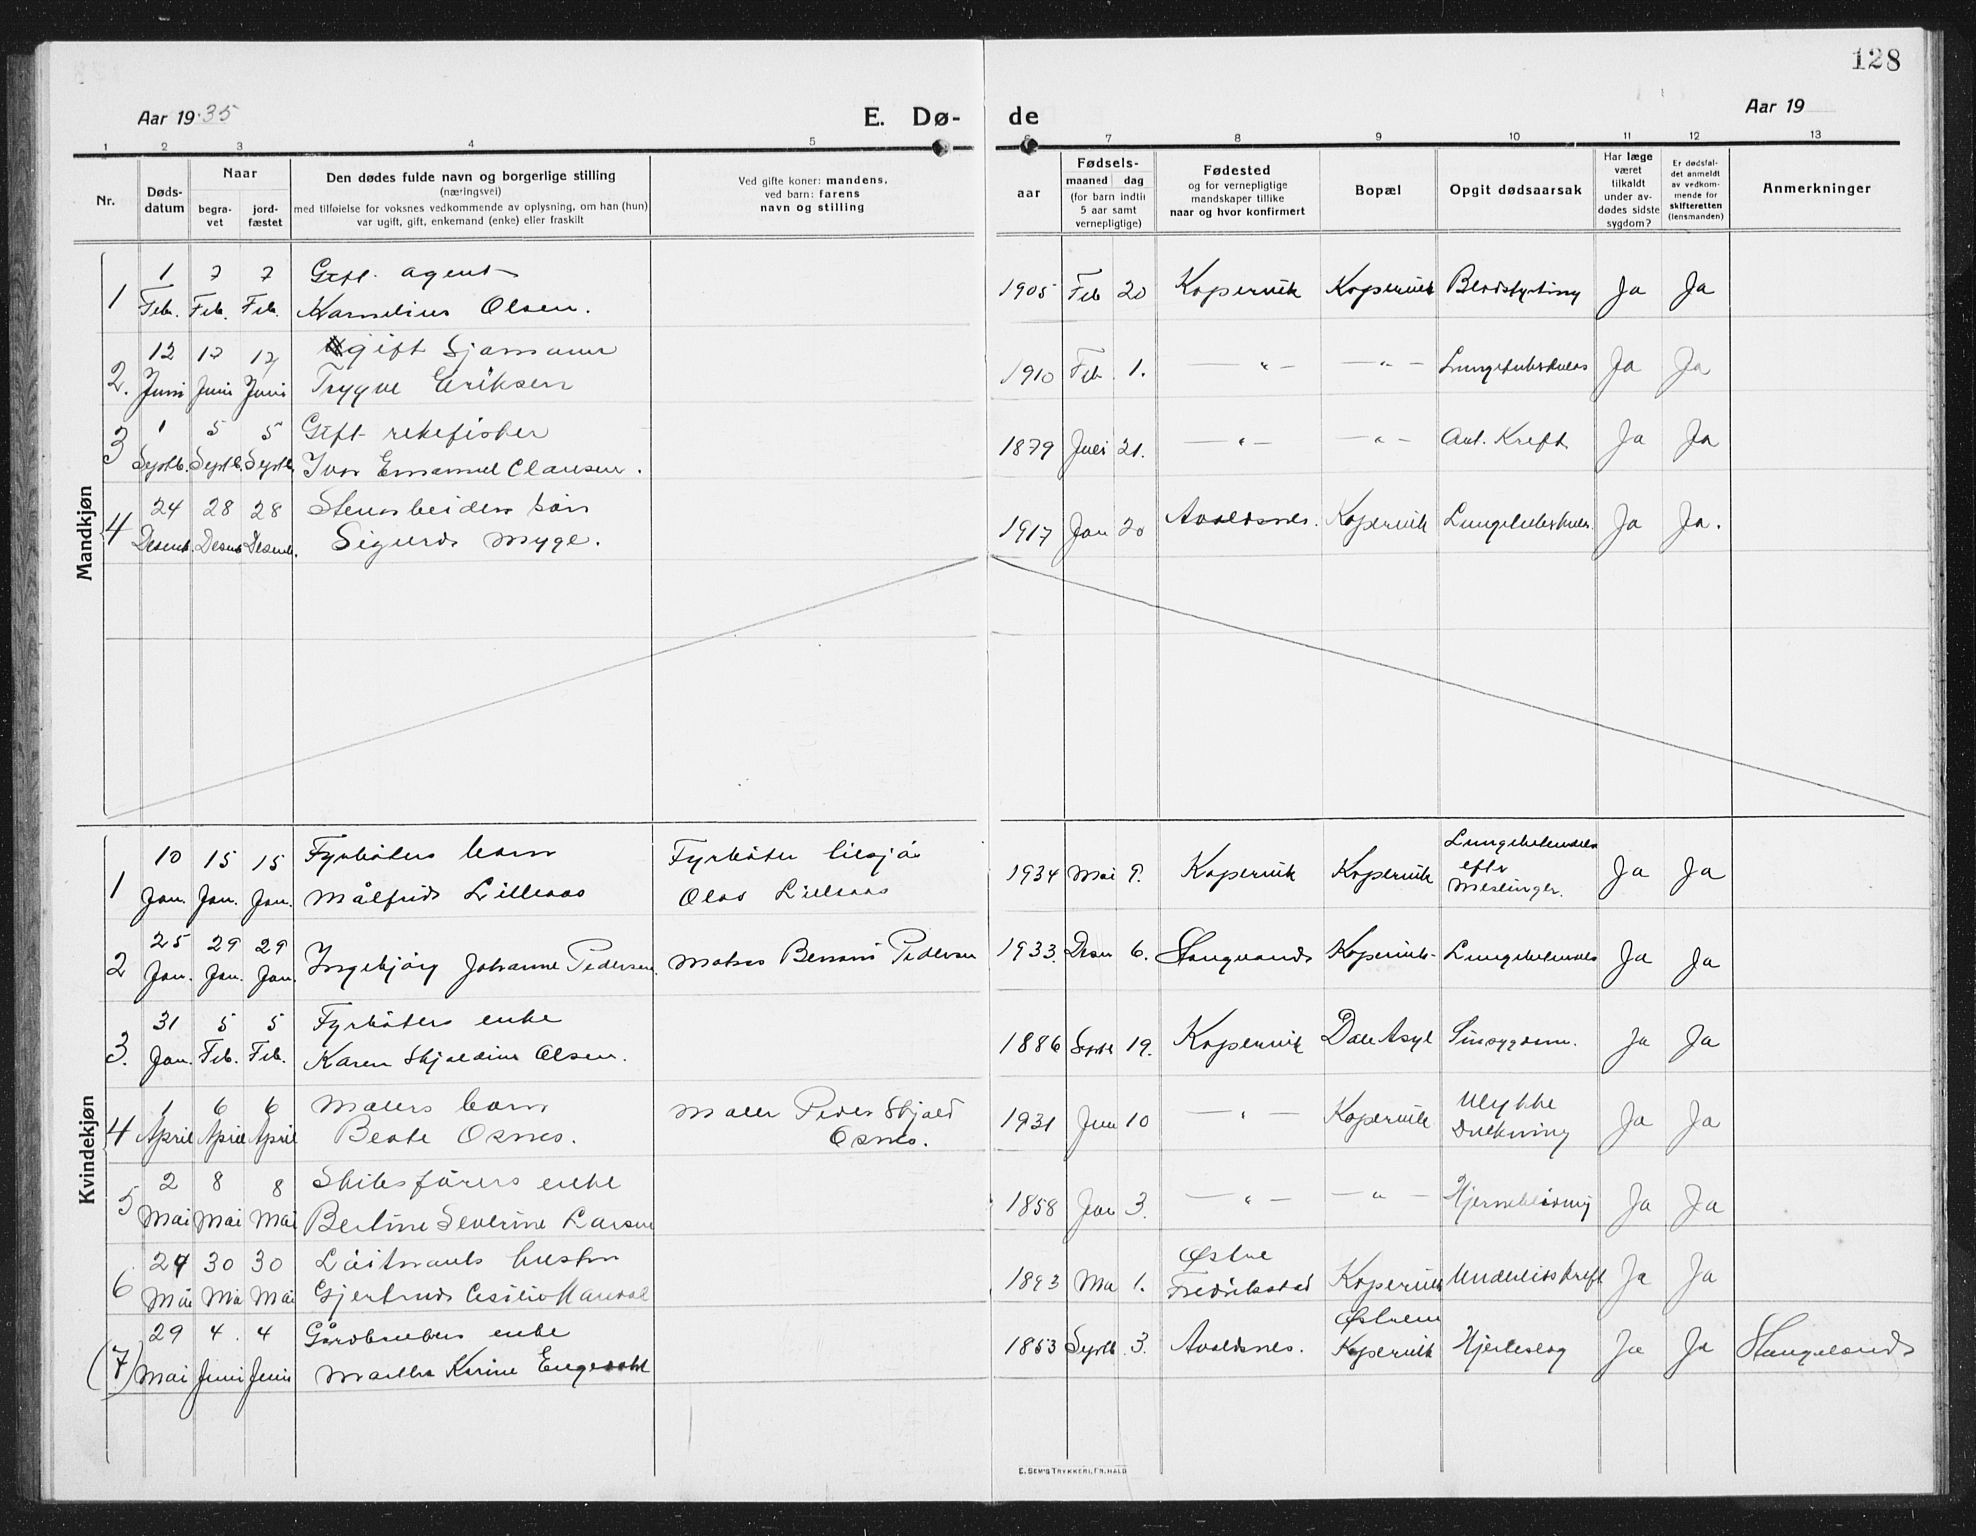 128
Aar 1935
E. Dø-
de
Aar 19
1 2 3 4 5 6 7 8 9 10 11 12 13
Nr.
Døds-
datum
Naar
begra-
vet
jord-
fæstet
Den dødes fulde navn og borgerlige stilling
(næringsvei)
med tilføielse for voksnes vedkommende av oplysning, om han (hun)
var ugift, gift, enkemand (enke) eller fraskilt
Ved gifte koner: mandens,
ved barn: farens
navn og stilling
aar
Fødsels-
maaned dag
(for barn indtil
5 aar samt
vernepligtige)
Fødested
og for vernepligtige
mandskaper tillike
naar og hvor konfirmert
Bopæl
Opgit dødsaarsak
Har læge
været
tilkaldt
under av-
dødes sidste
sygdom?
Er dødsfal-
det anmeldt
av vedkom-
mende for
skifteretten
(lensmanden)
Anmerkninger
Mandkjøn
1 7 7 Gift agent
1 Feb. Feb. Feb. Kornelius Olsen. 1905 Feb 20 Kopervik Kopervik Blodstyrtning Ja Ja
12 17 17 gift Sjømann
2. Juni Juni Juni Trygve Eriksen 1910 Feb. 1. — " — — " — Lungetuberkulos Ja Ja
1 5 5 Gift rekefisker
3 Septb. Septb. Septb. Ivar Emanuel Clausen. 1879 Juli 21. — " — — " — Ant. Kreft Ja Ja
24 28 28 Stenarbeiders søn
4 Desemb. Desemb. Desemb. Sigurd Myge. 1917 Jan 20 Avaldsnes. Kopervik Lungetuberkulos. Ja Ja.
Kvindekjøn
10 15 15 Fyrbøters barn Fyrbøter tilsjøs Lungebetendels
1 Jan. Jan. Jan. Målfrid Lilleaas Olav Lilleaas 1934 Mai 9. Kopervik Kopervik efter Ja Ja
Meslinger.
25 29 29
2 Jan. Jan. Jan. Ingebjørg Johanne Pedersen Matros Pedersen 1933. Desem 6. Stangeland Kopervik Lungebetendels Ja Ja
31 5 5 Fyrbøters enke
3. Jan. Feb. Feb. Karen Skjoldine Olsen. 1886 Septb 19. Kopervik Dale Asyl Sinsygdom. Ja Ja
1 6 6 Malers barn Maler Peder Skjold Ulykke
4 April April April Beate Osnes. Osnes. 1931 Jun 10 — " — Kopervik Drukning Ja Ja
2 8 8 Skibsførers enke
5 Mai Mai Mai Bertine Severine Larsen 1858 Jan 3. — " — — " — Hjerneblødning Ja Ja
24 30 30 Løitnants hustru Østre
6 Mai Mai Mai Gjertrud Cesilie 1893 Ma 1. Fredrikstad Kopervik Underlivskreft Ja Ja
29 4. 4 Gårdbrukers enke Østrem
(7) Mai Juni Juni Martha Karine Engesdal 1853 Septb. 3. Avaldsnes. Kopervik Hjerteslag Ja Ja Stangeland
E. SEM'S TRYKKERI, FR.HALD